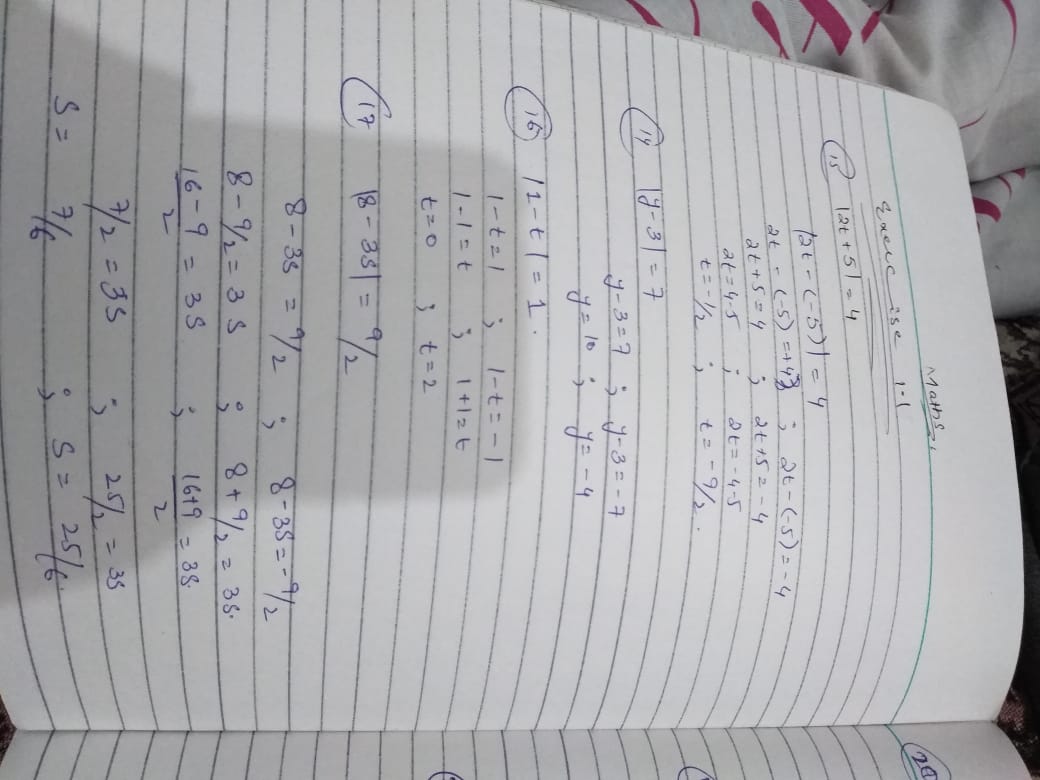 Maths
Exercise 1.1
15 |2t+5| = 4
|2t-(-5)| = 4
2t-(-5)=+4 ; 2t-(-5)=-4
2t+5=4 ; 2t+5=-4
2t=4-5 ; 2t=-4-5
t=-1/2 ; t=-9/2.
14 |y-3|=7
y-3=7 ; y-3=-7
y=10 ; y=-4
16 |1-t|=1.
1-t=1 ; 1-t=-1
1-1=t ; 1+1=t
t=0 ; t=2
17 |8-3s|= 9/2
8-3s = 9/2 ; 8-3s=-9/2
8-9/2=3s ; 8+9/2=3s.
16-9/2 = 3s ; 16+9/2 = 3s.
7/2=3s ; 25/2=3s
s= 7/6 ; s= 25/6.